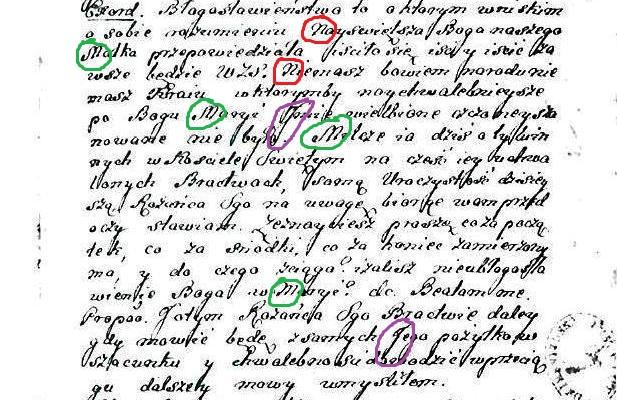 Exord. Błogosławieństwo to o którym wniskim
o sobie rozumieniu Nayświętsza Boga naszego
Matka przepowiedziała iściło się, iści y iścić za
wsze będzie W.J.S. Niemasz bowiem narodu nie
masz Kraiu, w którymby naychwalebnieysze
po Bogu Maryi Imie wielbione czczone y sza
nowane nie było. Milczę ia dziś o tylu in
nych w Kosciele Swiętym na cześć iey uchwa
lonych Bractwach, samą Uroczystość dzisiey
szą Rożańca Sgo na uwagę biorąc wam przed
oczy stawiam. proszę co za począ
tek, co za srodki, co za koniec zamierzony
ma, y do czego ściąga? izalisz nieubłogosła
wienie Boga w Maryi? dc. Beatam me.
Propoo. Jatym Rożańca Sgo Bractwie daley
gdy mowić będę z samych Jego pożytków
szacunku y chwalebności dowodzić w przecią
gu dalszey mowy umyśliłem.